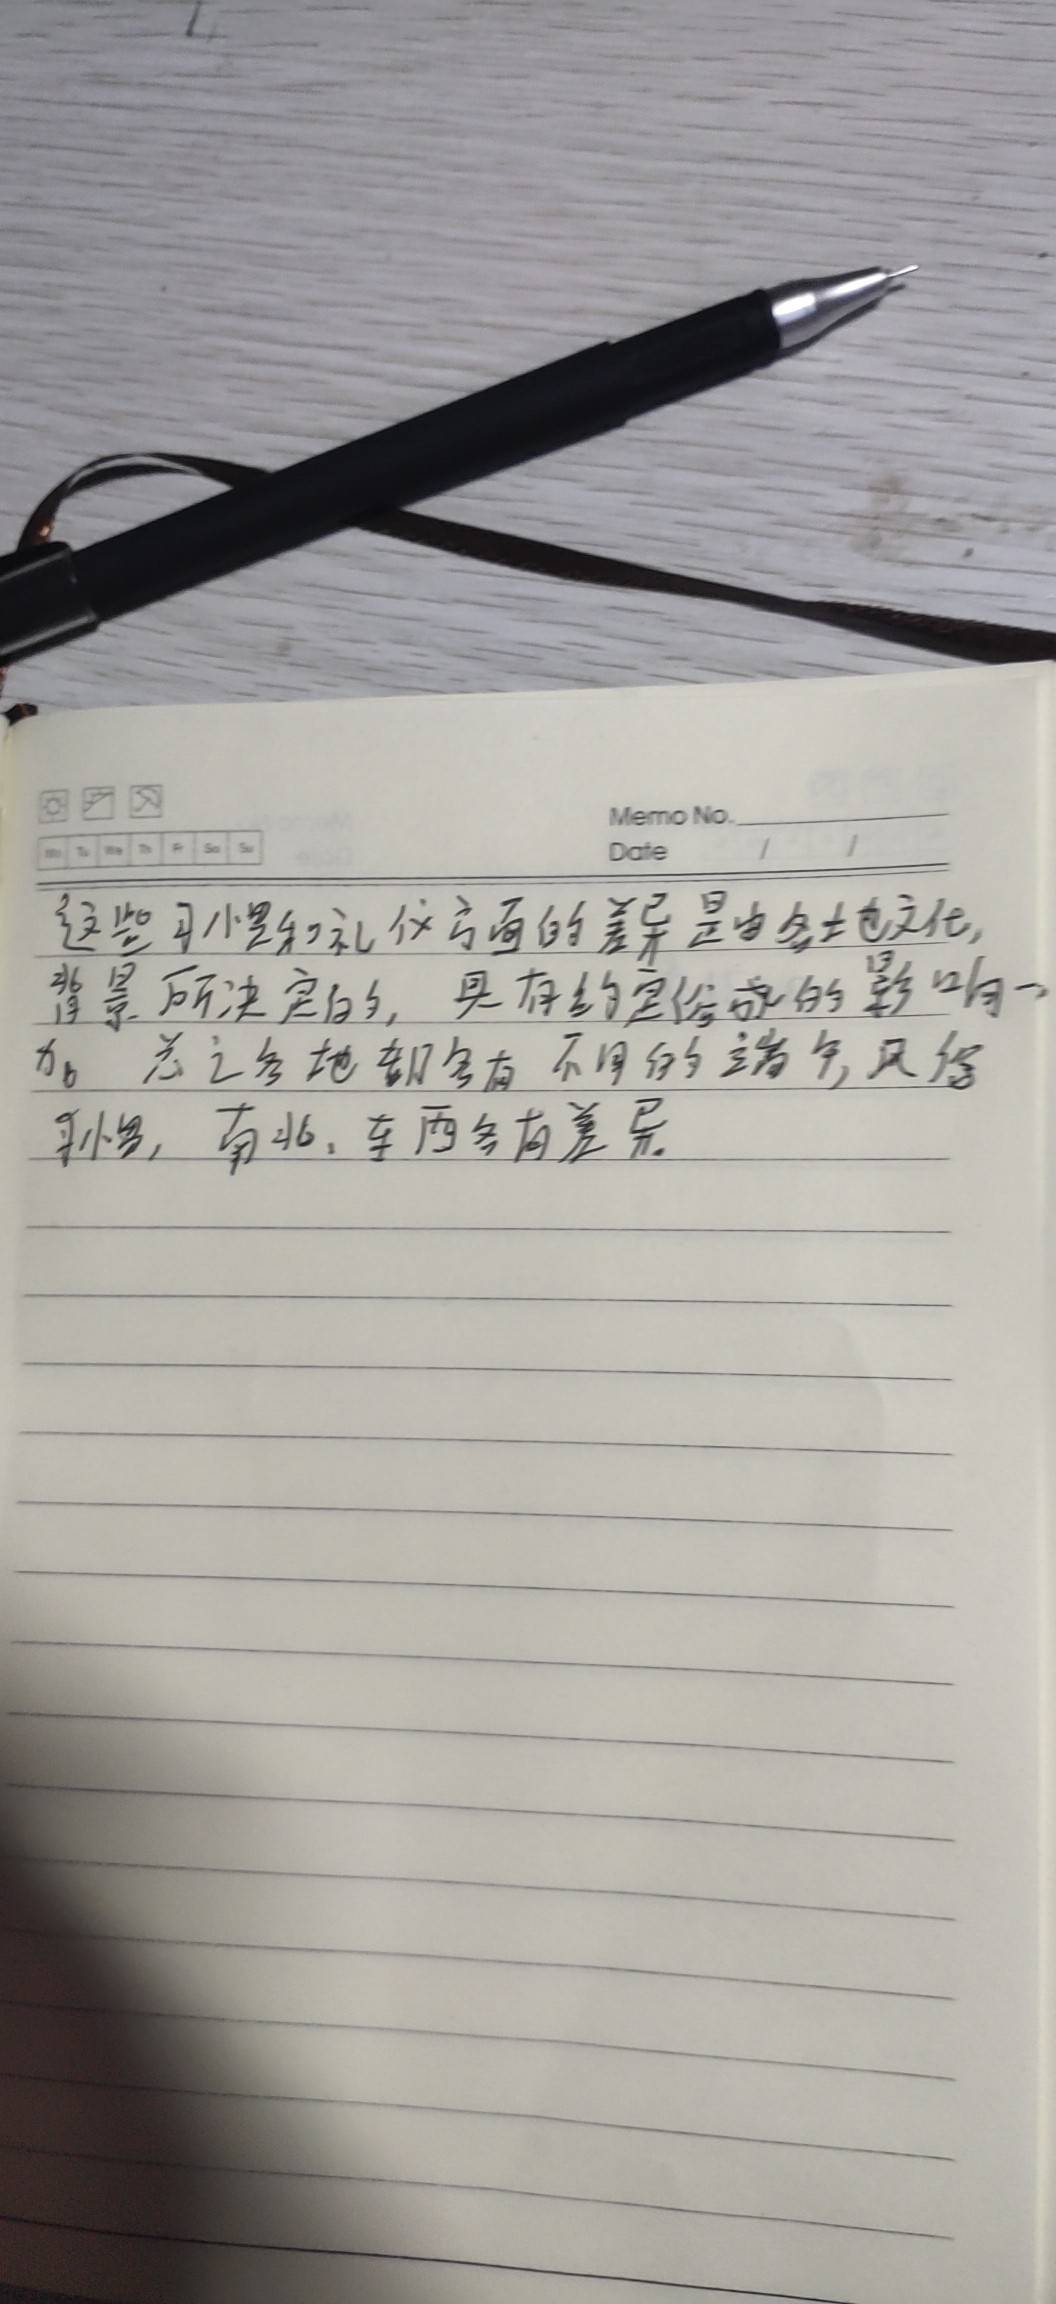 Memo No.
Mo Tu We Th Fr Sa Su
Date / /
这些习惯和礼仪方面的差异是由各地文化,
背景所决定的, 具有约定俗成的影响
力。 总之各地都各有不同的端午,风俗
习惯, 南北、东西各有差异.